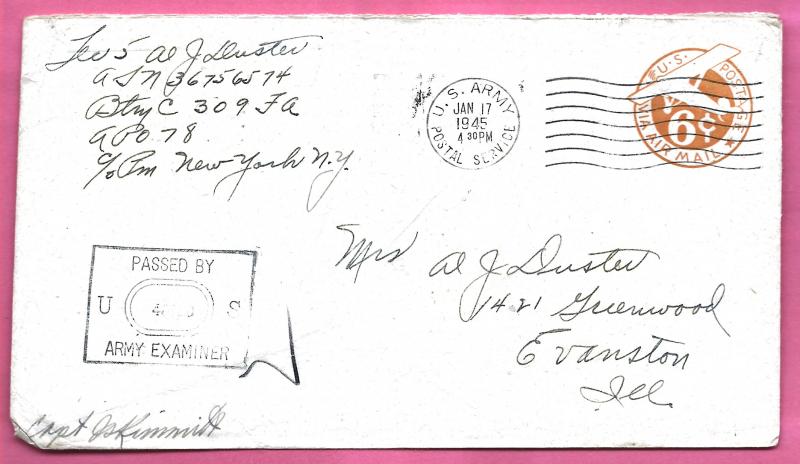 Tec 5 Al J Duster
ASN 36756574
Btry C 309 FA
APO 78
c/o Pm New York N.Y.
U.S. ARMY
JAN 17
1945
4 30PM
POSTAL SERVICE
U.S. POSTAGE
6¢
VIA AIR MAIL
Mrs Al J Duster
1421 Greenwood
Evanston
Ill.
PASSED BY
U S
ARMY EXAMINER
Capt